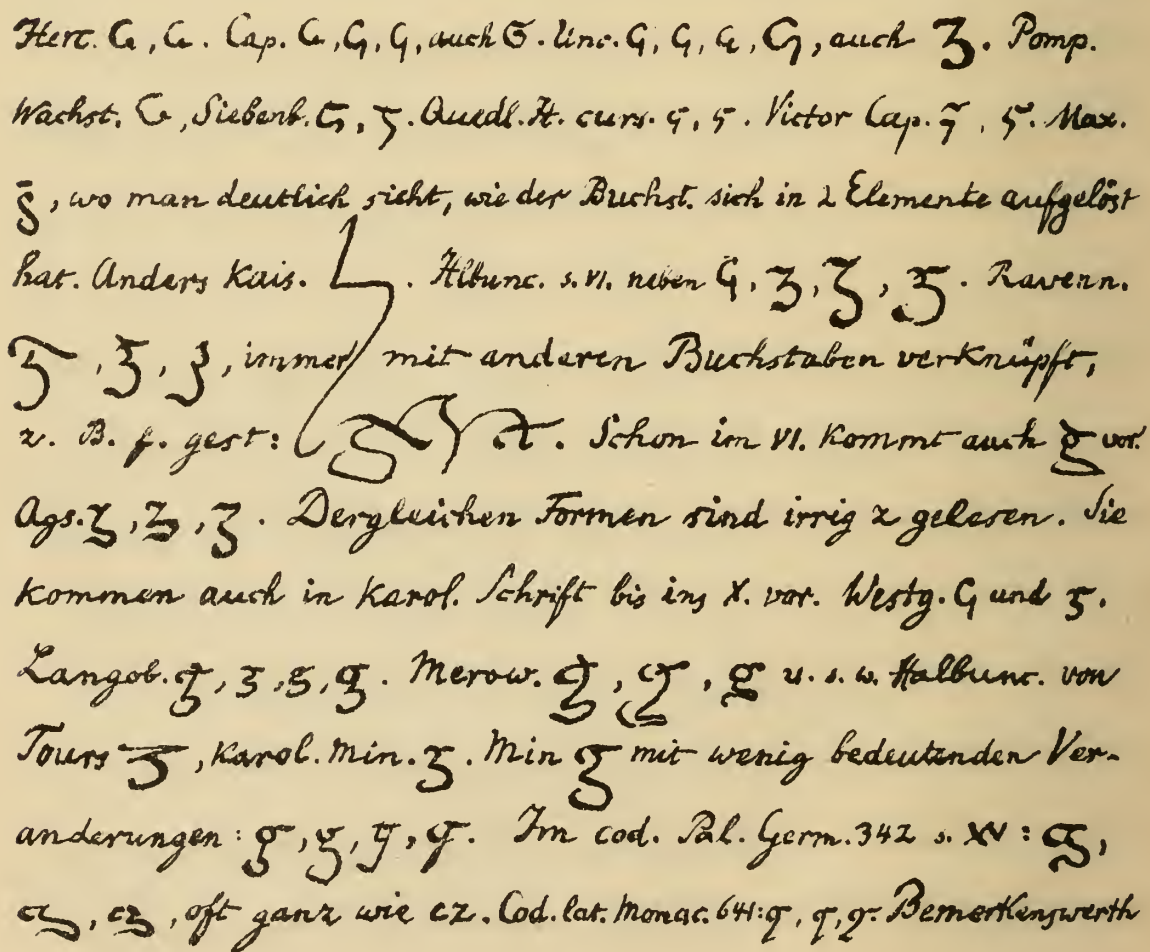 Herc. G, G. Cap. G, G, G, auch G. Unc. G, G, G, G, auch Ʒ. Pomp.
Wachst. G, Siebenb. G, ʒ. Quedl. It. curs. ʒ, ʒ. Victor Cap. ʒ, ʒ. Max.
g, wo man deutlich sieht, wie der Buchst. sich in 2 Elemente aufgelöst
hat. Anders Kais. G. Hlbunc. s. VI. neben G, ʒ, ʒ, ʒ. Ravenn.
ʒ, ʒ, ʒ, immer mit anderen Buchstaben verknüpft,
z. B. f. gest: gest. Schon im VI. kommt auch g vor.
Ags. ʒ, ʒ, ʒ. Dergleichen Formen sind irrig z gelesen. Sie
kommen auch in karol. Schrift bis ins X. vor. Westg. G und ʒ.
Langob. g, ʒ, g, g. Merow. g, g, g u. s. w. Halbunc. von
Tours ʒ, karol. Min. ʒ. Min g mit wenig bedeutenden Ver-
anderungen: g, g, g, g. Im cod. Pal. Germ. 342 s. XV: g,
cz, cz, oft ganz wie cz. Cod. lat. Monac. 641: g, g, g. Bemerkenswerth